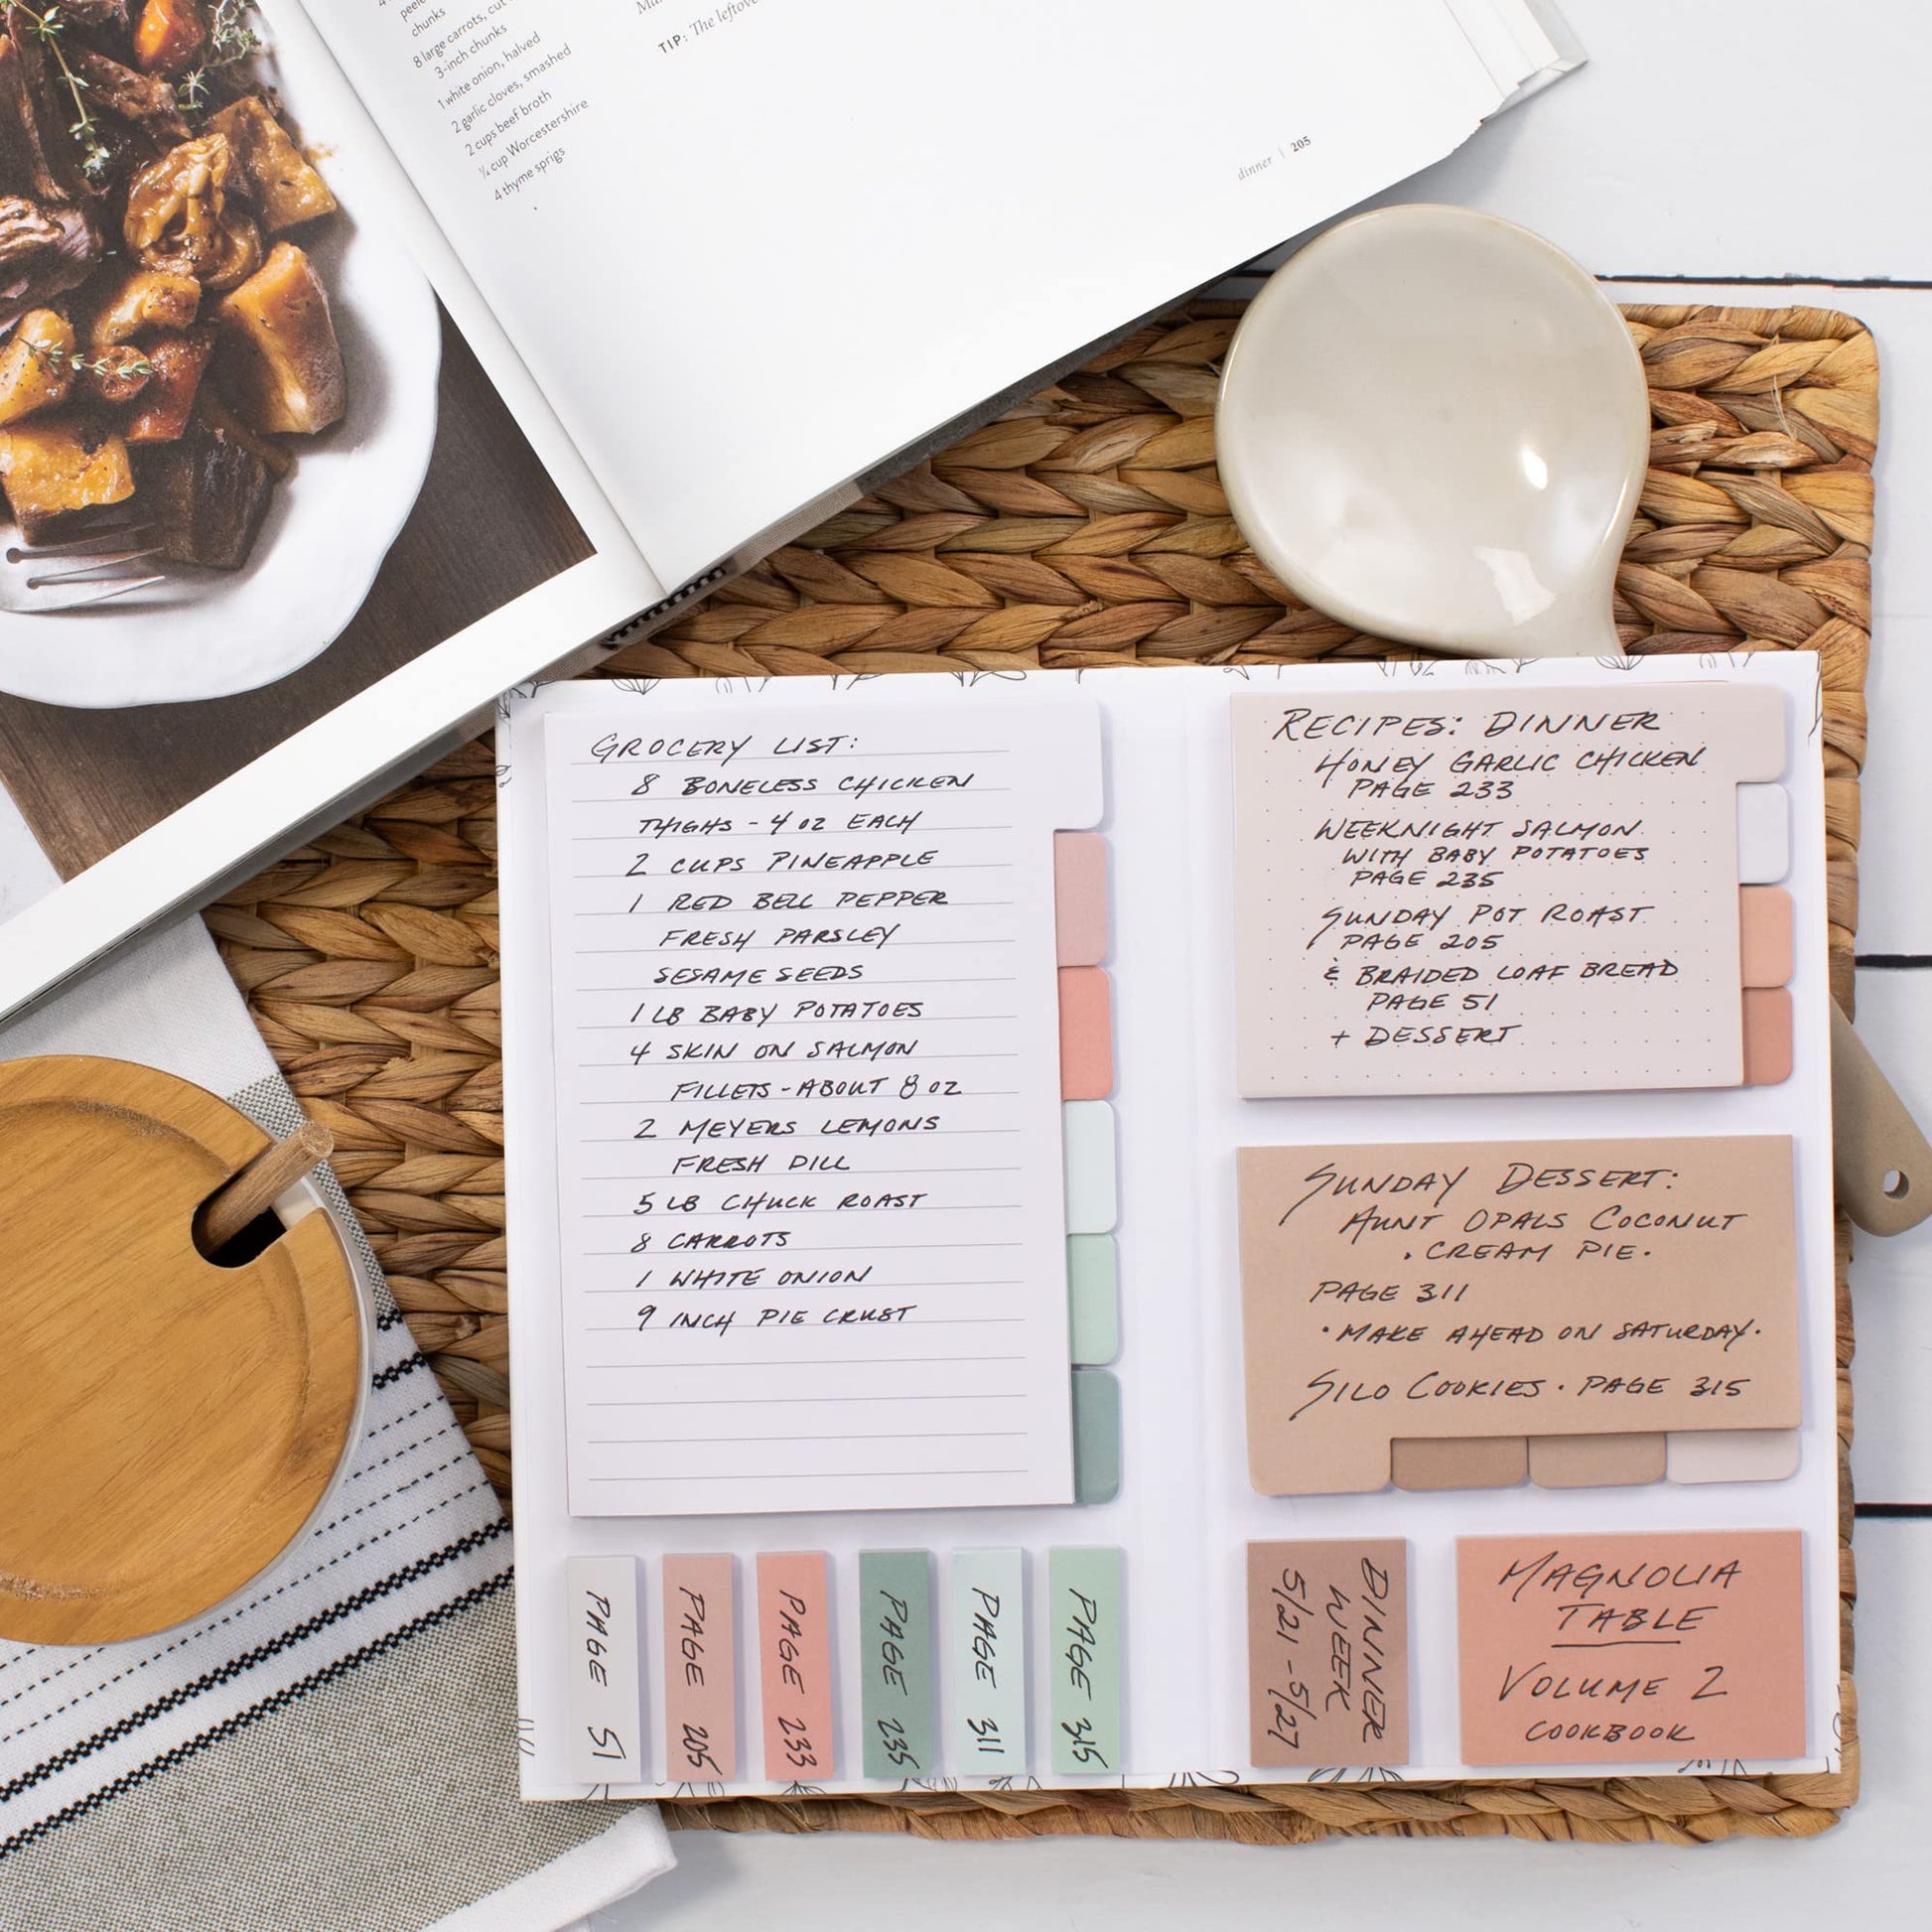 chunks
8 large carrots, cut
3-inch chunks
1 white onion, halved
2 garlic cloves, smashed
2 cups beef broth
¼ cup Worcestershire
4 thyme sprigs
TIP: The leftove
dinner | 205
GROCERY LIST:
8 BONELESS CHICKEN
THIGHS - 4 OZ EACH
2 CUPS PINEAPPLE
1 RED BELL PEPPER
FRESH PARSLEY
SESAME SEEDS
1 LB BABY POTATOES
4 SKIN ON SALMON
FILLETS - ABOUT 8 OZ
2 MEYERS LEMONS
FRESH DILL
5 LB CHUCK ROAST
8 CARROTS
1 WHITE ONION
9 INCH PIE CRUST
PAGE 51
PAGE 205
PAGE 233
PAGE 235
PAGE 311
PAGE 315
RECIPES: DINNER
HONEY GARLIC CHICKEN
PAGE 233
WEEKNIGHT SALMON
WITH BABY POTATOES
PAGE 235
SUNDAY POT ROAST
PAGE 205
& BRAIDED LOAF BREAD
PAGE 51
+ DESSERT
SUNDAY DESSERT:
AUNT OPALS COCONUT
• CREAM PIE •
PAGE 311
• MAKE AHEAD ON SATURDAY •
SILO COOKIES • PAGE 315
DINNER
WEEK
5/21 - 5/27
MAGNOLIA
TABLE
VOLUME 2
COOKBOOK